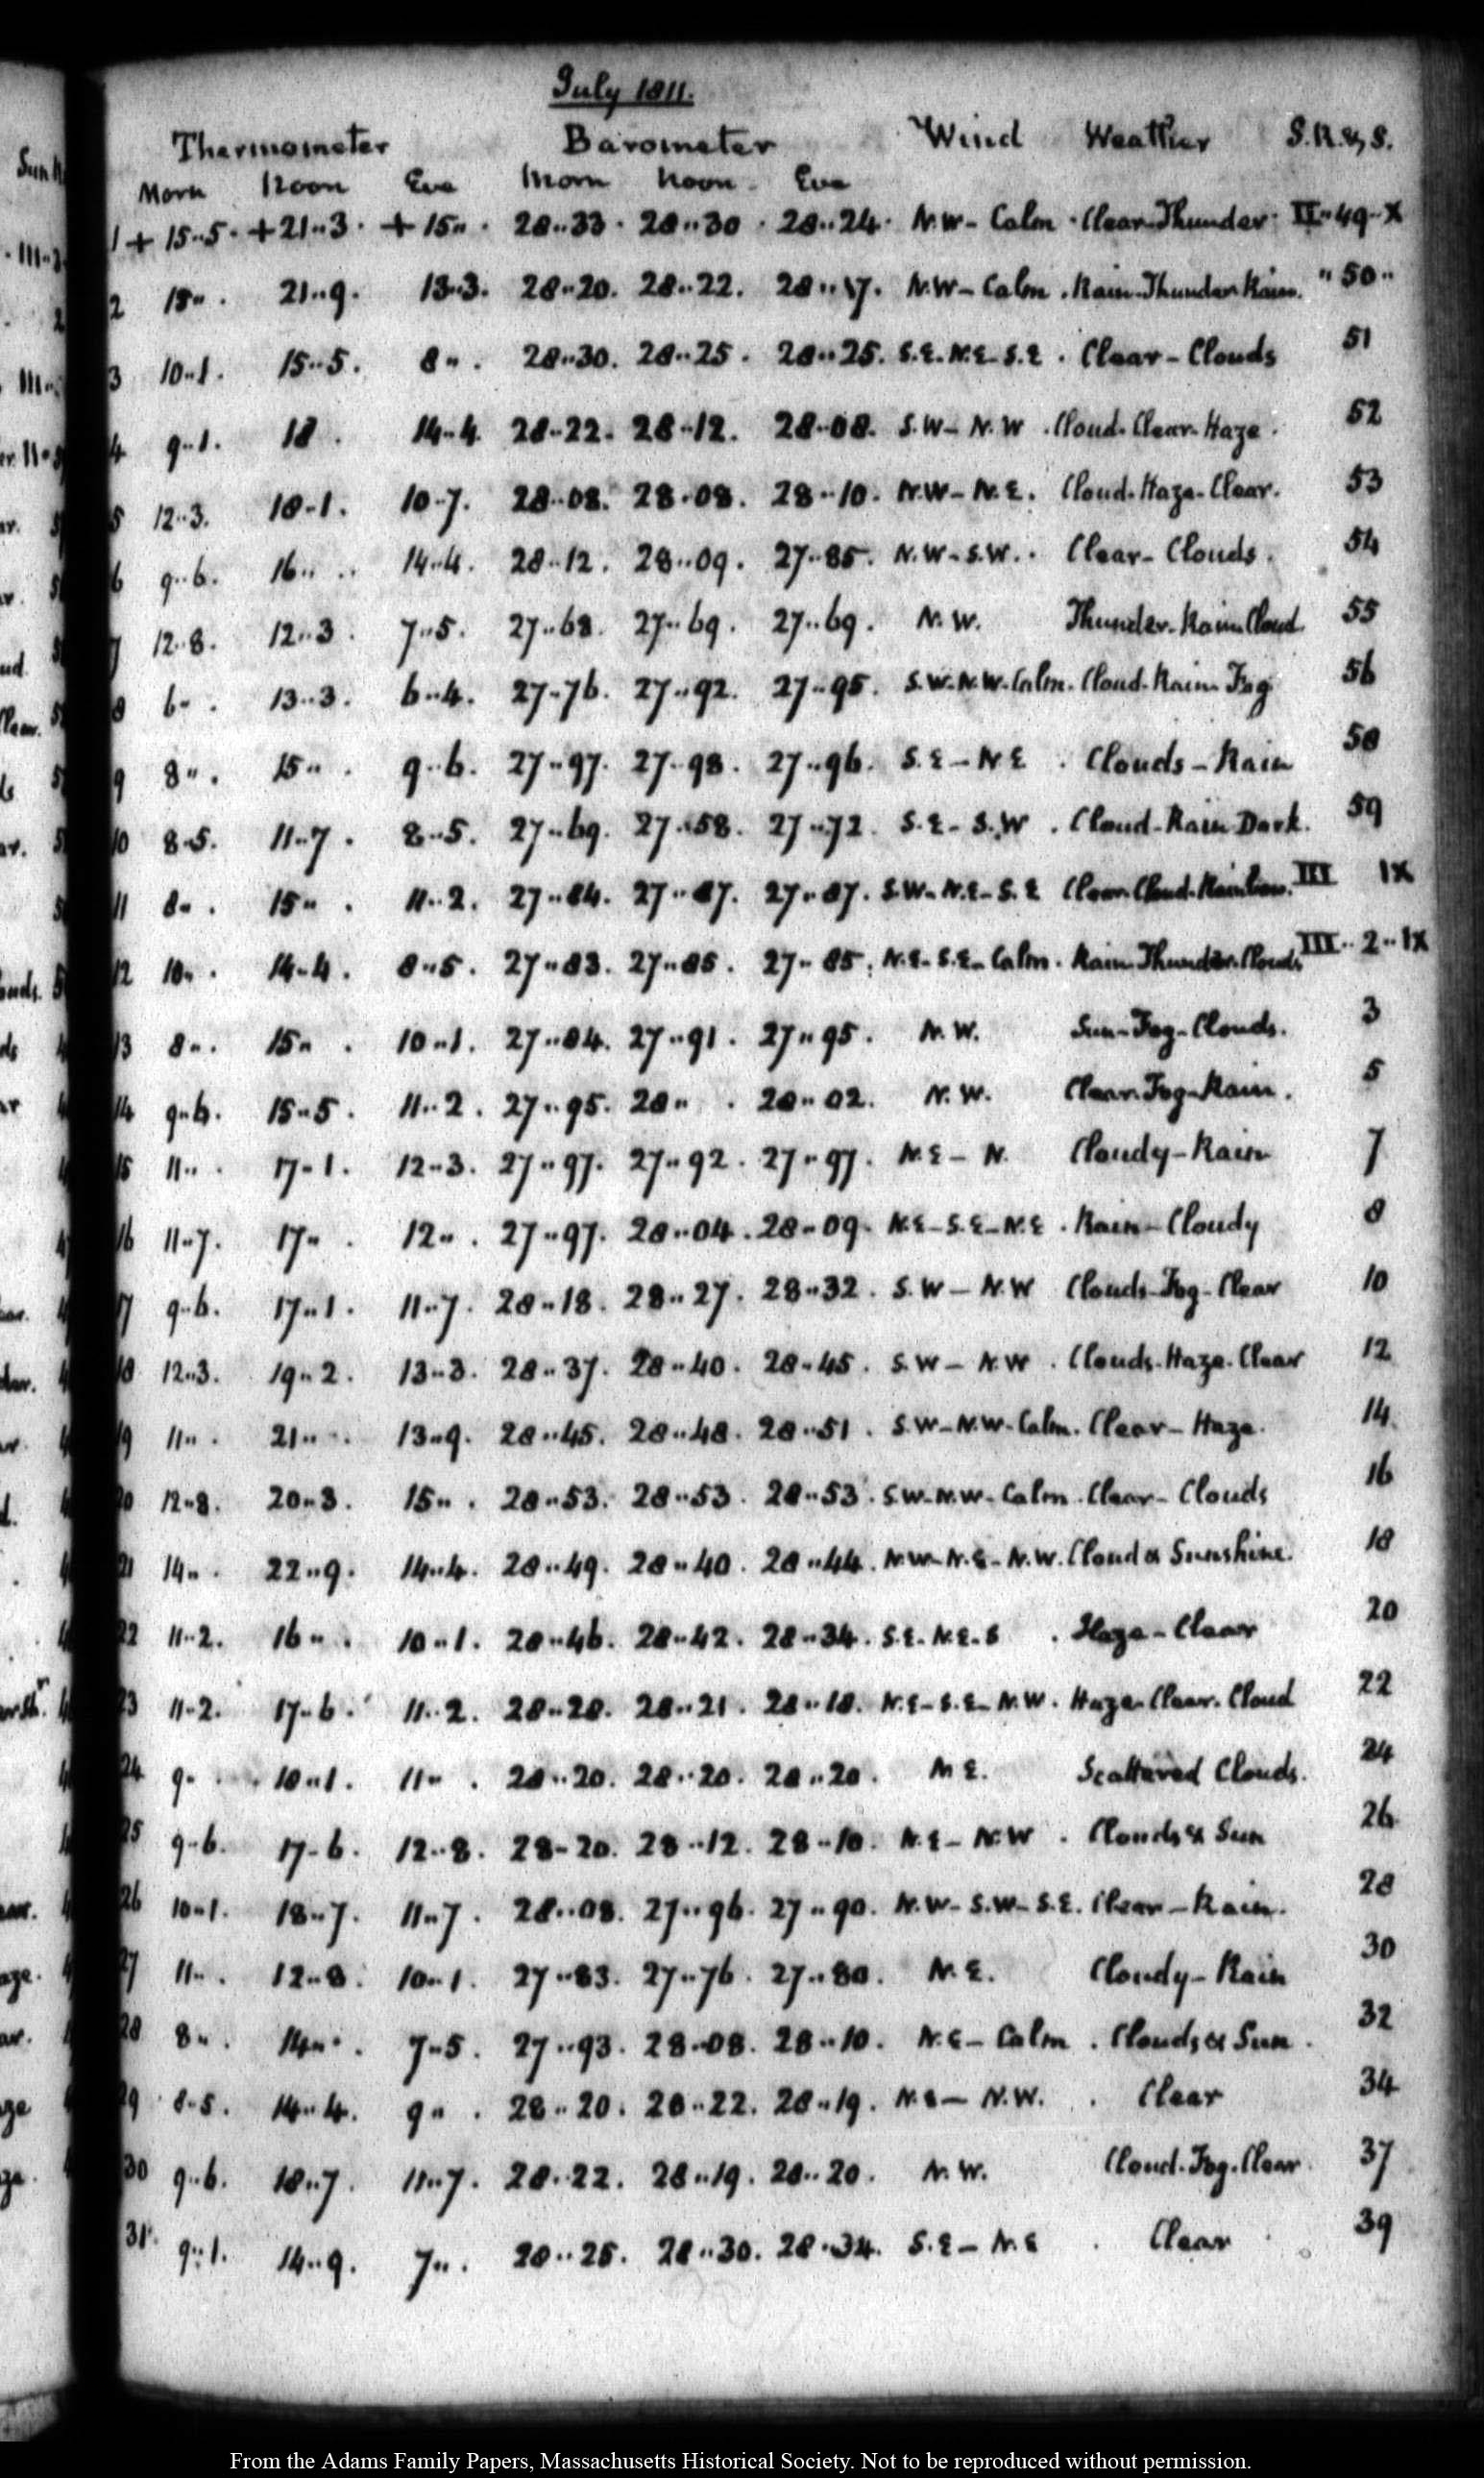 July 1811.
Thermometer Barometer Wind Weather S.R. & S.
Morn Noon Eve Morn Noon Eve
1 + 15..5. + 21..3. + 15.. . 28..33. 28..30. 28..24. N.W- Calm. Clear-Thunder. II..49..X
2 15.. . 21..9. 13..3. 28..20. 28..22. 28..17. N.W- Calm. Rain-Thunder-Rain. " 50..
3 10..1. 15..5. 8.. . 28..30. 28..25. 28..25. S.E-N.E-S.E. Clear-Clouds 51
4 9..1. 18. 14..4. 28..22. 28..12. 28..08. S.W- N.W. Cloud-Clear-Haze. 52
5 12..3. 18..1. 10..7. 28..08. 28..08. 28..10. N.W- N.E. Cloud-Haze-Clear. 53
6 9..6. 16.. . 14..4. 28..12. 28..09. 27..85. N.W-S.W. Clear-Clouds. 54
7 12..8. 12..3. 7..5. 27..68. 27..69. 27..69. N.W. Thunder-Rain-Cloud. 55
8 6.. . 13..3. 6..4. 27..76. 27..92. 27..95. S.W-N.W-Calm. Cloud-Rain-Fog 56
9 8.. . 15.. . 9..6. 27..97. 27..98. 27..96. S.E-N.E. Clouds-Rain 58
10 8..5. 11..7. 8..5. 27..69. 27..58. 27..72. S.E-S.W. Cloud-Rain-Dark. 59
11 8.. . 15.. . 11..2. 27..84. 27..87. 27..87. S.W-N.E-S.E Clear-Cloud-Rainbow. III IX
12 10.. . 14..4. 8..5. 27..83. 27..85. 27..85. N.E-S.E-Calm. Rain-Thunder-Clouds III..2..IX
13 8.. . 15.. . 10..1. 27..84. 27..91. 27..95. N.W. Sun-Fog-Clouds. 3
14 9..6. 15..5. 11..2. 27..95. 28.. . 28..02. N.W. Clear-Fog-Rain. 5
15 11.. . 17..1. 12..3. 27..97. 27..92. 27..97. N.E- N. Cloudy-Rain 7
16 11..7. 17.. . 12.. . 27..97. 28..04. 28..09. N.E-S.E-N.E. Rain-Cloudy 8
17 9..6. 17..1. 11..7. 28..18. 28..27. 28..32. S.W- N.W Clouds-Fog-Clear 10
18 12..3. 19..2. 13..3. 28..37. 28..40. 28..45. S.W- N.W. Clouds-Haze-Clear 12
19 11.. . 21.. . 13..9. 28..45. 28..48. 28..51. S.W-N.W-Calm. Clear-Haze. 14
20 12..8. 20..3. 15.. . 28..53. 28..53. 28..53. S.W-N.W-Calm. Clear-Clouds 16
21 14.. . 22..9. 14..4. 28..49. 28..40. 28..44. N.W-N.E-N.W. Cloud & Sunshine. 18
22 11..2. 16.. . 10..1. 28..46. 28..42. 28..34. S.E-N.E-S. Haze-Clear 20
23 11..2. 17..6. 11..2. 28..28. 28..21. 28..18. N.E-S.E-N.W. Haze-Clear-Cloud 22
24 9.. . 10..1. 11.. . 28..20. 28..20. 28..20. N E. Scattered Clouds. 24
25 9..6. 17..6. 12..8. 28..20. 28..12. 28..10. N.E- N.W. Clouds & Sun 26
26 10..1. 18..7. 11..7. 28..08. 27..96. 27..90. N.W-S.W-S.E. Clear-Rain. 28
27 11.. . 12..8. 10..1. 27..83. 27..76. 27..80. N.E. Cloudy-Rain 30
28 8.. . 14.. . 7..5. 27..93. 28..08. 28..10. N.E-Calm. Clouds & Sun. 32
29 8..5. 14..4. 9.. . 28..20. 28..22. 28..19. N.E- N.W. Clear 34
30 9..6. 18..7. 11..7. 28..22. 28..19. 28..20. N.W. Cloud-Fog-Clear. 37
31. 9..1. 14..9. 7.. . 28..25. 28..30. 28..34. S.E- N.E. Clear 39
From the Adams Family Papers, Massachusetts Historical Society. Not to be reproduced without permission.